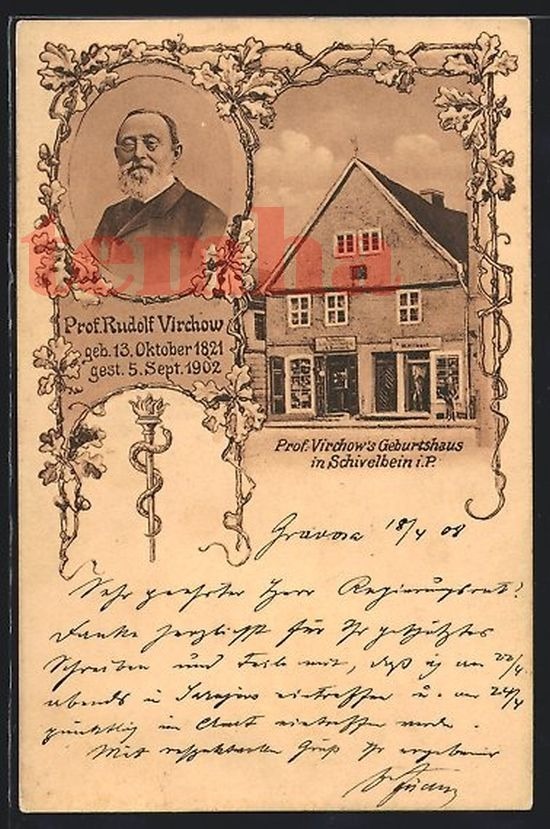 Prof. Rudolf Virchow
geb. 13. Oktober 1821
gest. 5. Sept. 1902
temha
Prof. Virchow's Geburtshaus
in Schivelbein i.P.
Gravosa 18/4 08
Sehr geehrter Herr Regierungsrat!
Danke herzlichst für Ihr geschätztes
Schreiben und teile mit, daß ich am 22/4
abends in Sarajevo eintreffen u. am 24/4
pünktlich im Amt eintreffen werde.
Mit Gruß Ihr ergebener